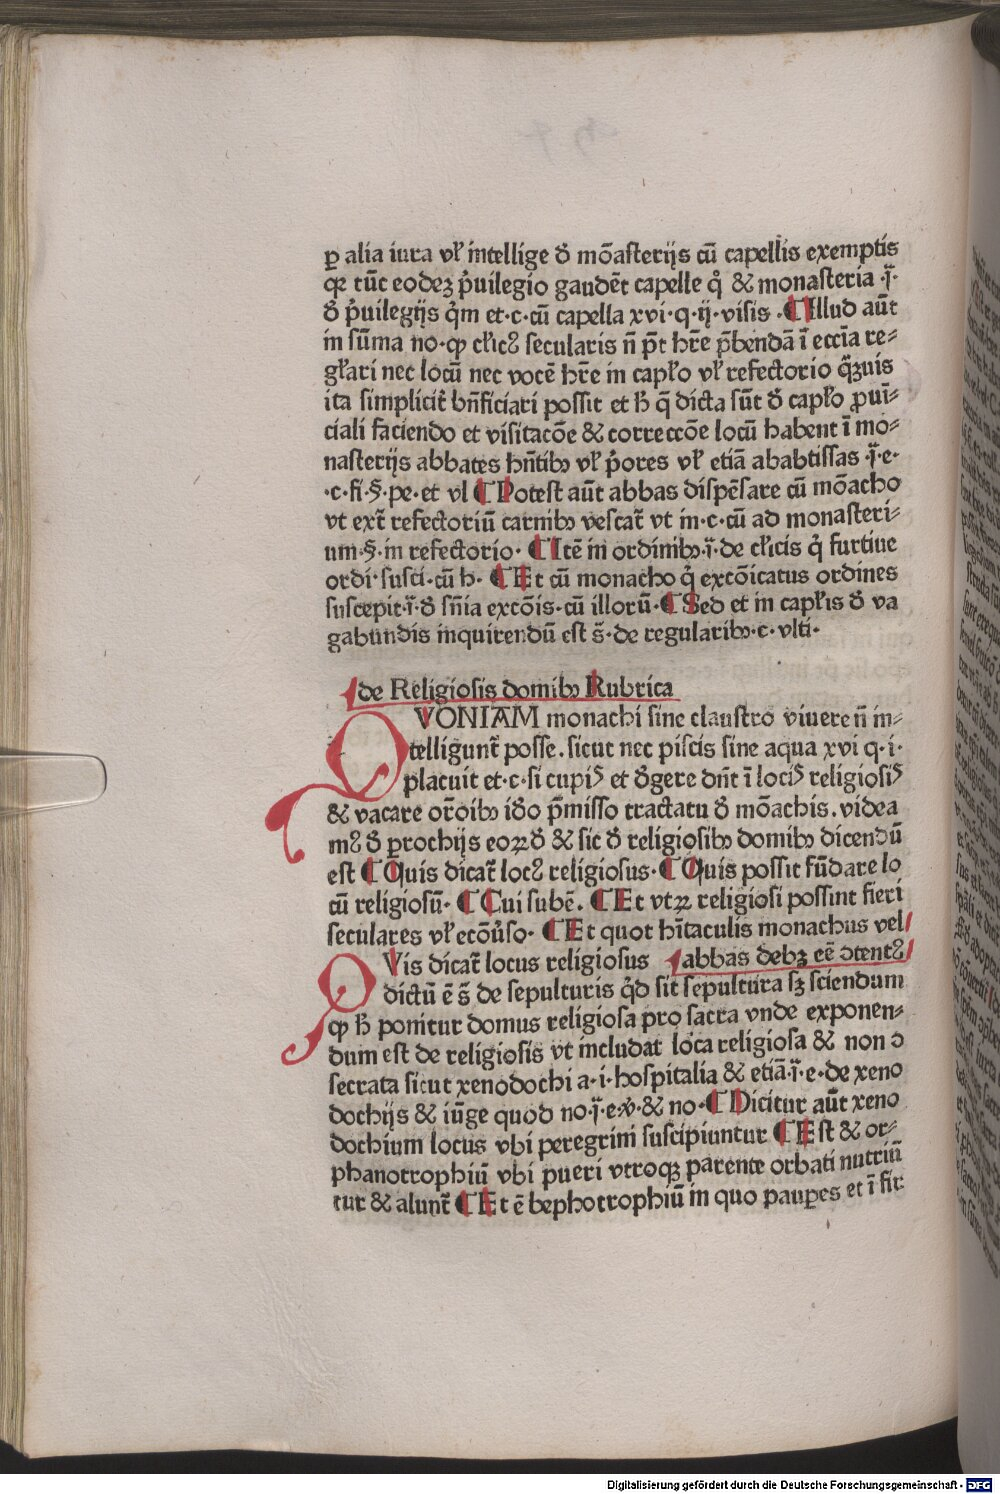 ꝑ alia iura vł intellige ð mōasterijs cū capellis exemptis
ꝙ tūc eodeꝫ p̉uilegio gaudēt capelle q̊ & monasteria ·i̅·
ð p̉uilegijs q̉m et·c·cū capella xvi·q·ij·visis ·¶ Illud aūt
in sūma no·ꝙ cłicꝰ secularis n̄ p̄t hr̄e p̄bendā ī eccīa re⸗
głari nec locū nec vocē hr̄e in capło vł refectorio q̄ꝫuis
ita simplicit̄ bn̄ficiari possit et ħ q̄ dicta sūt ð capło ꝓuī⸗
ciali faciendo et visitacōe & correccōe locū habent ī mo⸗
nasterijs abbates hn̄tibꝫ vł p̉ores vł etiā ababtissas ·i̅·e·
·c·fi·§·pe·et vl ¶ Potest aūt abbas dispēsare cū mōacho
vt ext̄ refectoriū carnibꝫ vescat̄ vt in·c·cū ad monasteri⸗
um·§·in refectorio· ¶ Itē in ordinibꝫ·i̅·de cłicis q̉ furtiue
ordi·susci·cū h· ¶ Et cū monacho q̉ excōicatus ordines
suscepit·i̅·ð sn̄ia excōis·cū illorū·¶ Sed et in capłis ð va
gabundis inquirendū est s̄·de regularibꝫ·c·vlti·
de Religiosis domibꝫ Rubrica
QVONIAM monachi sine claustro viuere n̄ in⸗
telligunt̄ posse·sicut nec piscis sine aqua xvi q·i·
placuit et·c·si cupiꝰ et ðgere dn̄t ī lociꝰ religiosiꝰ
& vacare or̄oibꝫ iðo p̄misso tractatu ð mōachis·videa
mꝰ ð ꝑrochijs eoꝝð & sic ð religiosibꝫ domibꝫ dicendū
est ¶ Quis dicat̄ locꝰ religiosus·¶ Quis possit fūdare lo
cū religiosū· ¶ Cui subē· ¶ Et vtꝝ religiosi possint fieri
seculares vł ecōu̓so· ¶ Et quot hītaculis monachus vel
QVis dicat̄ locus religiosus abbas debꝫ eē ↄtentꝰ
dictū ē s̄ de sepulturis q̉d sit sepultura sꝫ sciendum
ꝙ ħ ponitur domus religiosa pro sacra vnde exponen⸗
dum est de religiosis vt includat loca religiosa & non ↄ
secrata sicut xenodochi a·i·hospitalia & etiā·i̅·e·de xeno
dochijs & iūge quod no·i̅·e·ꝟ·& no·¶ Dicitur aūt xeno
dochium locus vbi peregrini suscipiuntur ¶ Est & or⸗
phanotrophiū vbi pueri vtroqꝫ parente orbati nutriū
tur & alunt̄ ¶ Et ē bephotrophiū in quo pauꝑes et ī fir
Digitalisierung gefördert durch die Deutsche Forschungsgemeinschaft - DFG